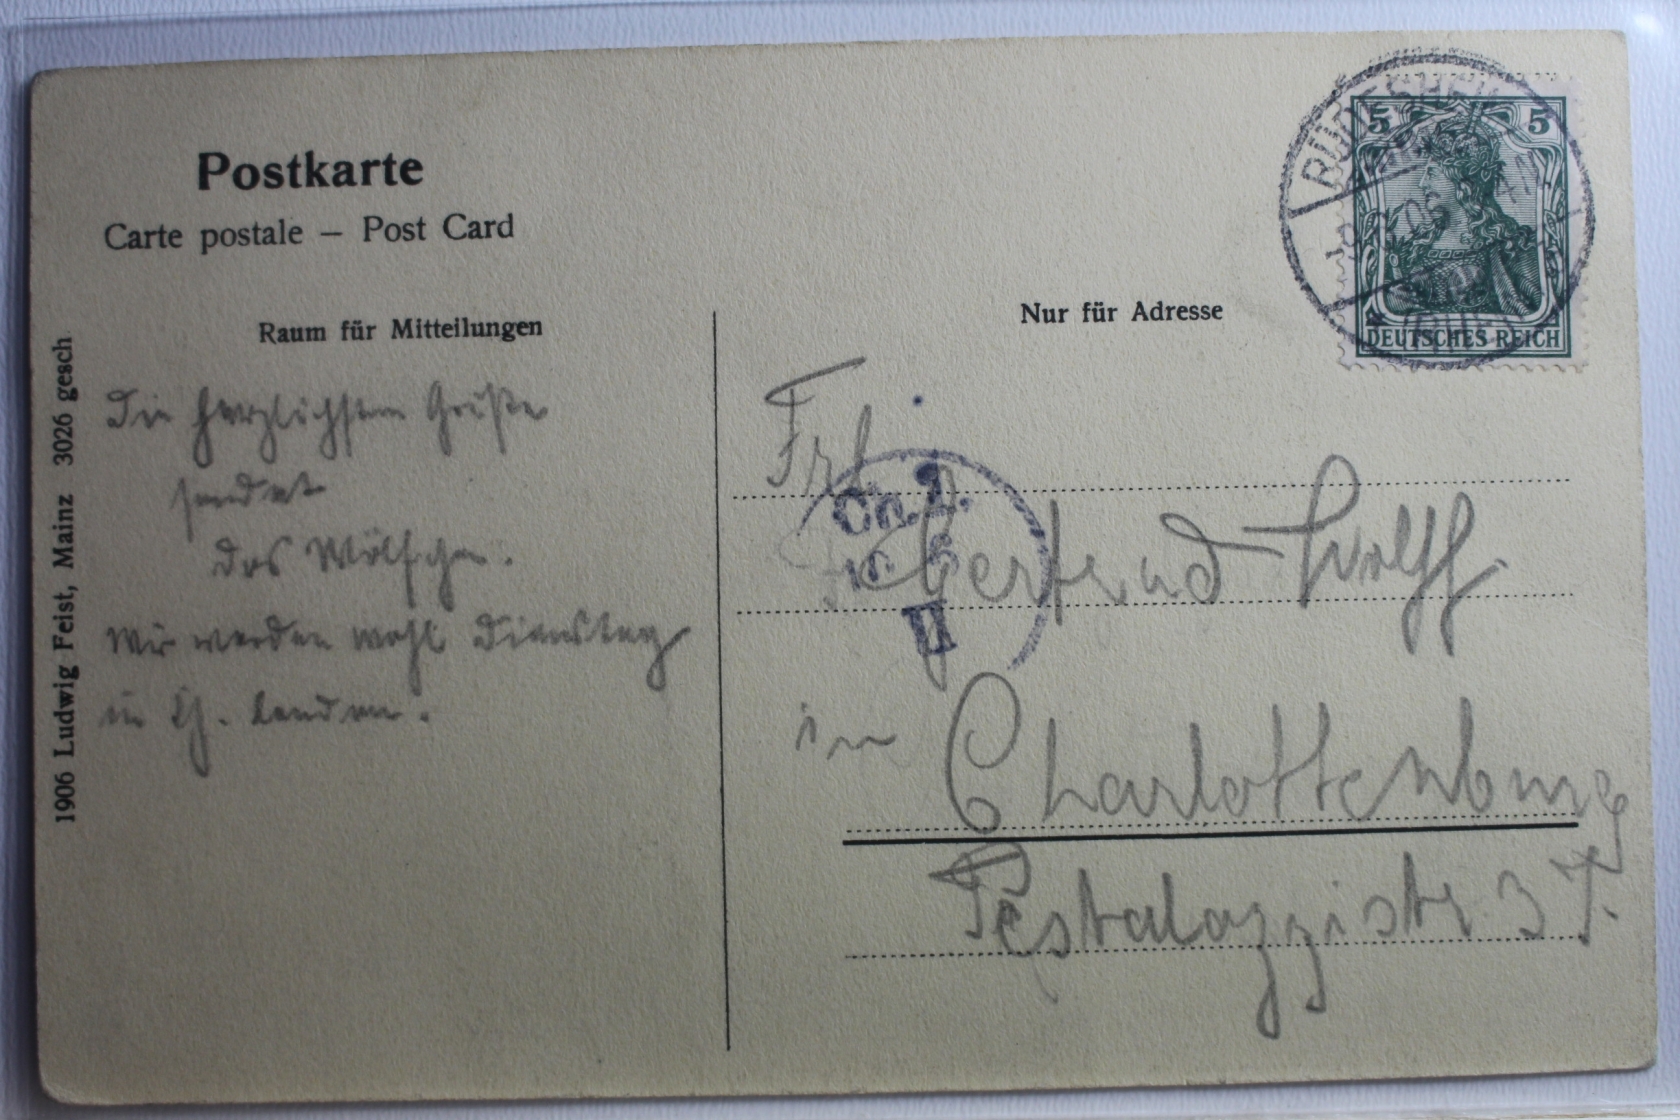 Postkarte
Carte postale – Post Card
Raum für Mitteilungen
Nur für Adresse
1906 Ludwig Feist, Mainz 3026 gesch
RÜDESHEIM
5 5
DEUTSCHES REICH
Die herzlichsten Grüße
sendet
das Wölfchen.
Wir werden wohl Dienstag
in Ch. landen.
Frl.
Gertrud Wolff.
in Charlottenburg
Pestalozzistr 3 I.
II